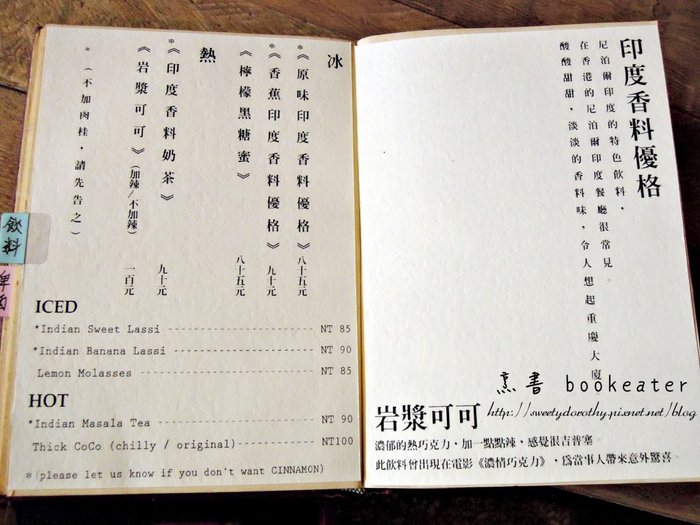 冰
*《原味印度香料優格》八十五元
*《香蕉印度香料優格》九十元
《檸檬黑糖蜜》八十五元
熱
*《印度香料奶茶》九十元
《岩漿可可》(加辣/不加辣)一百元
*(不加肉桂,請先告之)
飲料
ICED
*Indian Sweet Lassi ---------------------- NT 85
*Indian Banana Lassi --------------------- NT 90
Lemon Molasses --------------------------- NT 85
HOT
*Indian Masala Tea ----------------------- NT 90
Thick CoCo (chilly / original)------------ NT100
*(please let us know if you don't want CINNAMON)
印度香料優格
尼泊爾印度的特色飲料,
在香港的尼泊爾印度餐廳很常見
酸酸甜甜,淡淡的香料味,令人想起重慶大廈
烹書 bookeater
http://sweetydorothy.pixnet.net/blog
岩漿可可
濃郁的熱巧克力,加一點點辣,感覺很吉普塞
此飲料曾出現在電影《濃情巧克力》,為當事人帶來意外驚喜